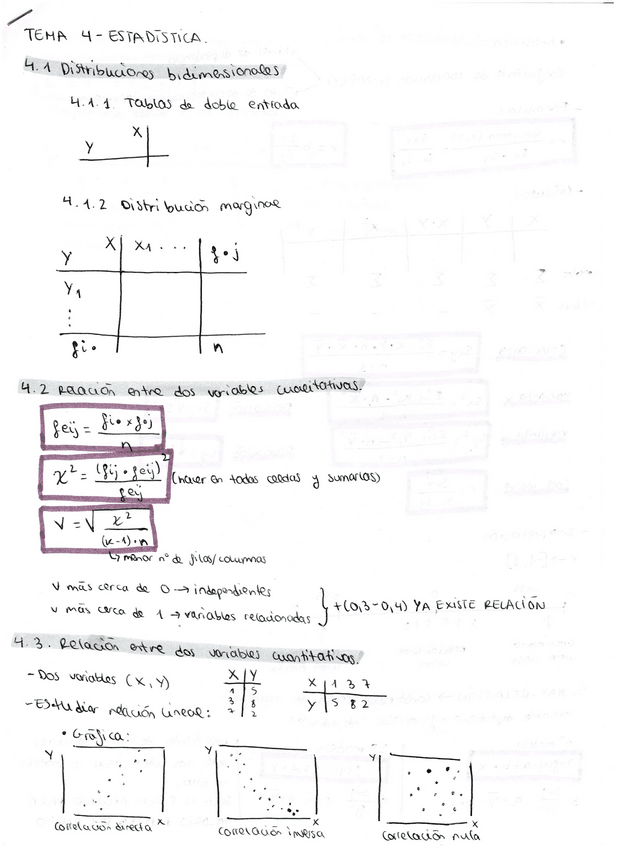 TEMA 4 - ESTADÍSTICA.
4.1 Distribuciones bidimensionales
4.1.1 Tablas de doble entrada
X
Y
4.1.2 Distribución marginal
Y X X1 ... f•j
Y1
⋮
fi• n
4.2 Relación entre dos variables cualitativas.
feij = fi• x f•j / n
χ² = (fij • feij)² / feij (hacer en todas celdas y sumarlos)
V = √ χ² / (k-1)·n
↳ menor nº de filas/columnas
V más cerca de 0 → independientes
V más cerca de 1 → variables relacionadas } + (0,3-0,4) YA EXISTE RELACIÓN
4.3. Relación entre dos variables cuantitativas.
- Dos variables (X, Y)
X Y
1 5
3 8
7 2
X 1 3 7
Y 5 8 2
- Estudiar relación lineal:
• Gráfica:
Y X
Correlación directa
Y X
Correlación inversa
Y X
Correlación nula